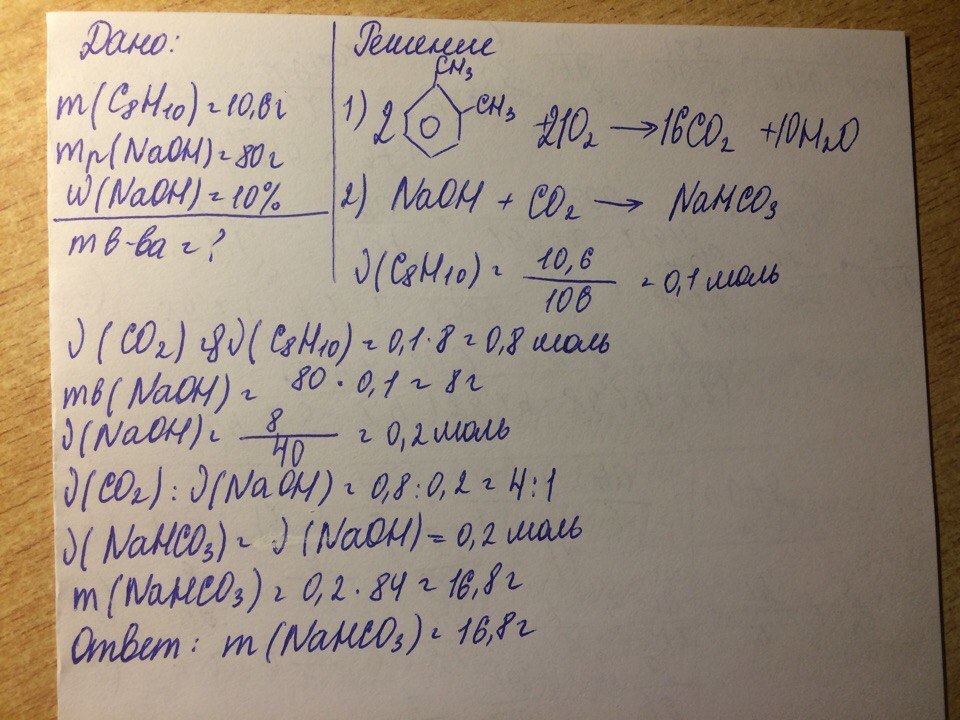 Дано:
m(C8H10) = 10,6г
mр(NaOH) = 80г
W(NaOH) = 10%
m в-ва = ?
Решение
CH3
1) 2 CH3 + 21O2 → 16CO2 + 10H2O
2) NaOH + CO2 → NaHCO3
ν(C8H10) = 10,6 / 106 = 0,1 моль
ν(CO2) = 8ν(C8H10) = 0,1·8 = 0,8 моль
mв(NaOH) = 80·0,1 = 8г
ν(NaOH) = 8 / 40 = 0,2 моль
ν(CO2) : ν(NaOH) = 0,8:0,2 = 4:1
ν(NaHCO3) = ν(NaOH) = 0,2 моль
m(NaHCO3) = 0,2·84 = 16,8г
Ответ: m(NaHCO3) = 16,8г